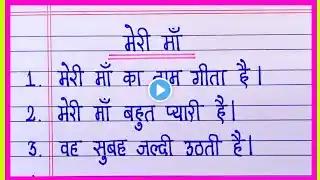 मेरी माँ
1. मेरी माँ का नाम गीता है।
2. मेरी माँ बहुत प्यारी है।
3. वह सुबह जल्दी उठती है।